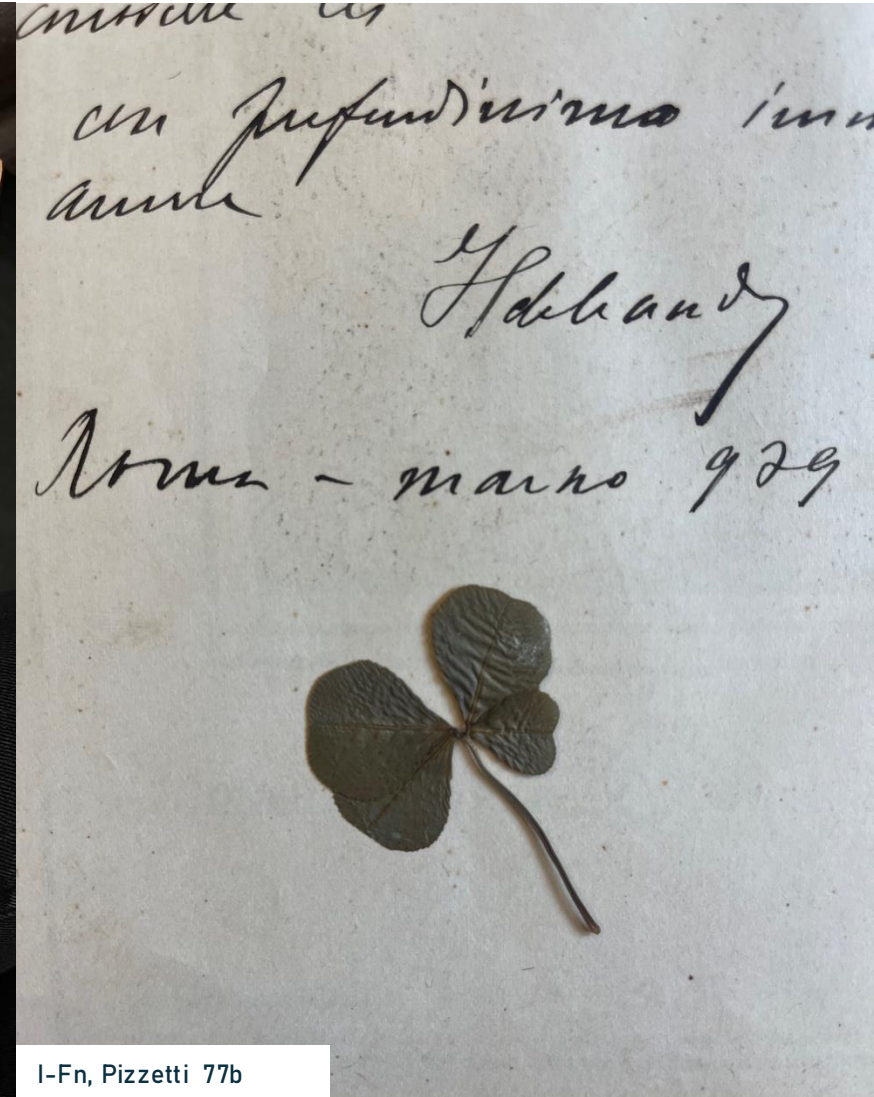 con profondissimo imm
amore
Ildebrando
Roma - marzo 929
I-Fn, Pizzetti 77b